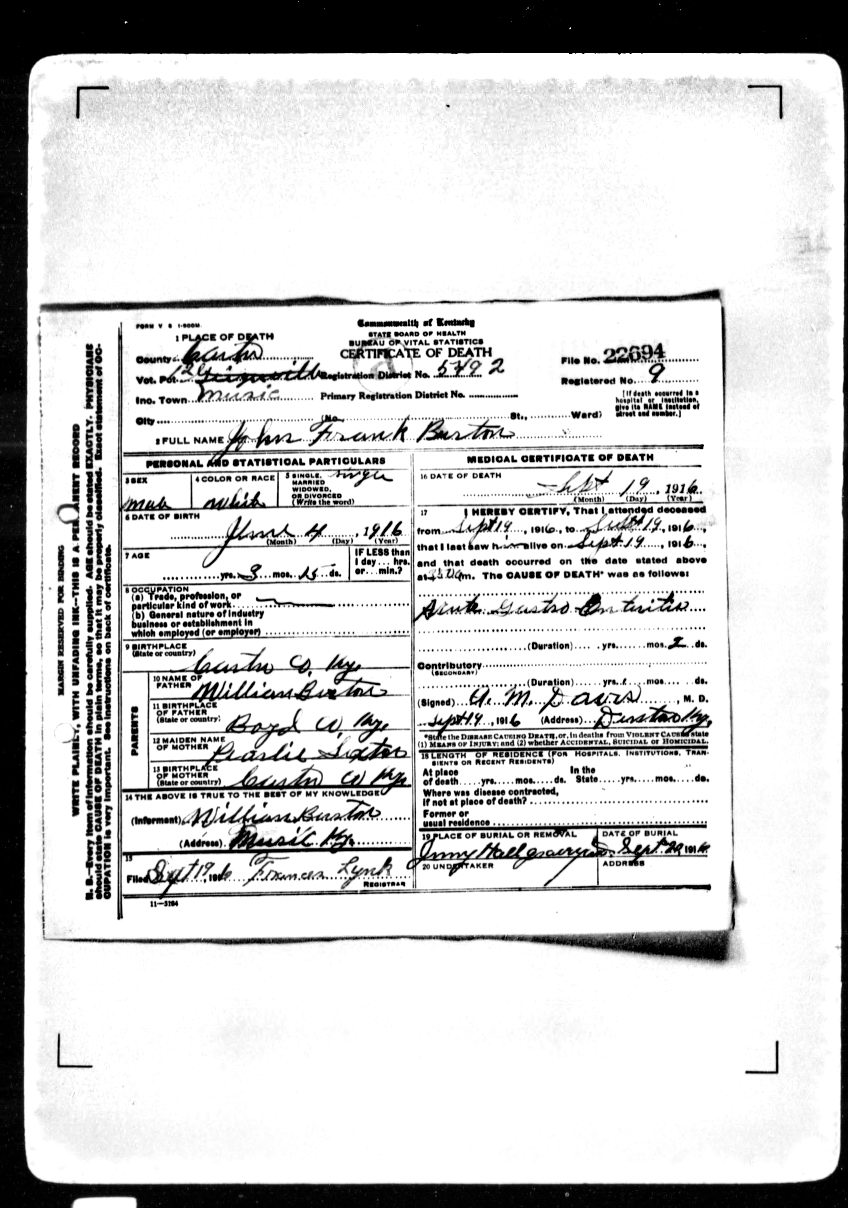 FORM V S 1-500M
Commonwealth of Kentucky
STATE BOARD OF HEALTH
BUREAU OF VITAL STATISTICS
CERTIFICATE OF DEATH
1 PLACE OF DEATH
County Carter
Vot. Pct.
Registration District No. 5492
Inc. Town Music
Primary Registration District No.
City (No. St., Ward)
File No. 22694
Registered No. 9
[If death occurred in a hospital or institution, give its NAME instead of street and number.]
2 FULL NAME John Frank Burton
PERSONAL AND STATISTICAL PARTICULARS
3 SEX
Male
4 COLOR OR RACE
White
5 SINGLE, MARRIED WIDOWED, OR DIVORCED (Write the word)
Single
6 DATE OF BIRTH
June 4, 1916
(Month) (Day) (Year)
7 AGE
yrs. 3 mos. 15 ds.
IF LESS than 1 day... hrs. or... min.?
8 OCCUPATION
(a) Trade, profession, or particular kind of work
(b) General nature of industry business or establishment in which employed (or employer)
9 BIRTHPLACE
(State or country)
Carter Co. Ky.
PARENTS
10 NAME OF FATHER
William Burton
11 BIRTHPLACE OF FATHER
(State or country)
Boyd Co Ky.
12 MAIDEN NAME OF MOTHER
13 BIRTHPLACE OF MOTHER
(State or country)
Carter Co Ky
14 THE ABOVE IS TRUE TO THE BEST OF MY KNOWLEDGE
(Informant) William Burton
(Address) Music Ky.
15
Filed Sept 19, 1916 Frances Lynk
REGISTRAR
11—3184
MEDICAL CERTIFICATE OF DEATH
16 DATE OF DEATH
Sept 19, 1916
(Month) (Day) (Year)
17 I HEREBY CERTIFY, That I attended deceased
from Sept 19, 1916, to Sept 19, 1916,
that I last saw him alive on Sept 19, 1916,
and that death occurred on the date stated above
at m. The CAUSE OF DEATH* was as follows:
Acute Gastro Enteritis
(Duration) yrs. mos. 2 ds.
Contributory
(SECONDARY)
(Duration) yrs. mos. ds.
(Signed) M. Davis, M. D.
Sept 19, 1916 (Address) Denton Ky.
*State the DISEASE CAUSING DEATH, or, in deaths from VIOLENT CAUSES state (1) MEANS OF INJURY; and (2) whether ACCIDENTAL, SUICIDAL or HOMICIDAL.
18 LENGTH OF RESIDENCE (FOR HOSPITALS, INSTITUTIONS, TRANSIENTS OR RECENT RESIDENTS)
At place of death yrs. mos. ds. In the State yrs. mos. ds.
Where was disease contracted, if not at place of death?
Former or usual residence
19 PLACE OF BURIAL OR REMOVAL
DATE OF BURIAL
Sept 20, 1916
20 UNDERTAKER
ADDRESS
MARGIN RESERVED FOR BINDING
WRITE PLAINLY, WITH UNFADING INK—THIS IS A PERMANENT RECORD
N. B.—Every item of information should be carefully supplied. AGE should be stated EXACTLY. PHYSICIANS
should state CAUSE OF DEATH in plain terms, so that it may be properly classified. Exact statement of OC-
CUPATION is very important. See instructions on back of certificate.